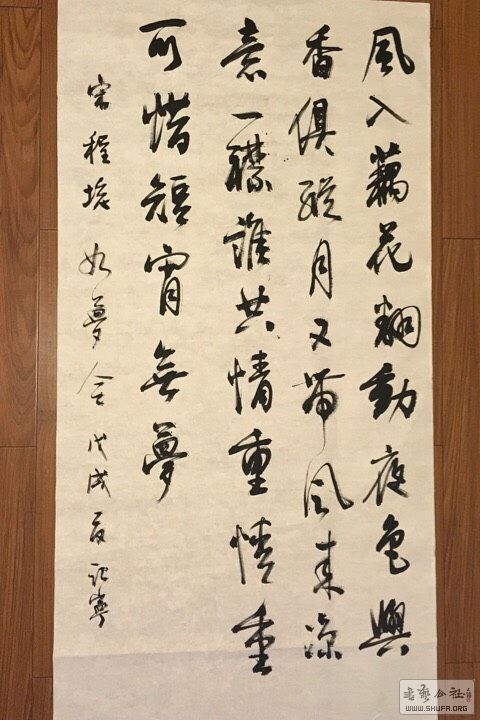 風入藕花翻動夜色與
香俱縱月又帶风来涼
意一襟誰共情重情重
可惜短宵無夢
宋程垓如夢令戊戌夏
書藝公社
WWW.SHUFA.ORG